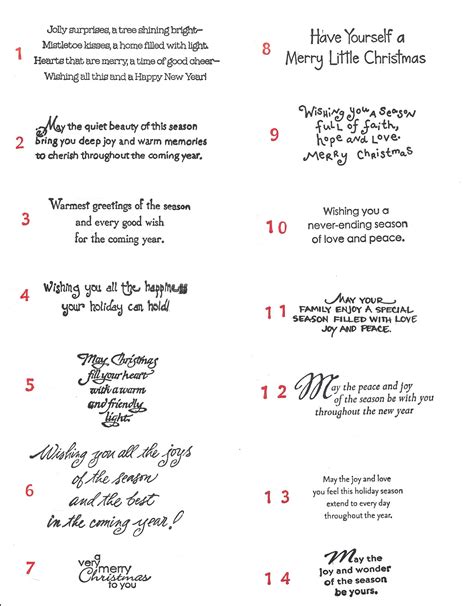 1
Jolly surprises, a tree shining bright—
Mistletoe kisses, a home filled with light.
Hearts that are merry, a time of good cheer—
Wishing all this and a Happy New Year!
2
May the quiet beauty of this season
bring you deep joy and warm memories
to cherish throughout the coming year.
3
Warmest greetings of the season
and every good wish
for the coming year.
4
Wishing you all the happiness
your holiday can hold!
5
May Christmas
fill your heart
with a warm
and friendly
light.
6
Wishing you all the joys
of the season
and the best
in the coming year!
7
a
very
merry
Christmas
to you
8
Have Yourself a
Merry Little Christmas
9
Wishing you a season
full of faith,
hope and love.
Merry Christmas
10
Wishing you a
never-ending season
of love and peace.
11
MAY YOUR
FAMILY ENJOY A SPECIAL
SEASON FILLED WITH LOVE
JOY AND PEACE.
12
May the peace and joy
of the season be with you
throughout the new year
13
May the joy and love
you feel this holiday season
extend to every day
throughout the year.
14
May the
joy and wonder
of the season
be yours.